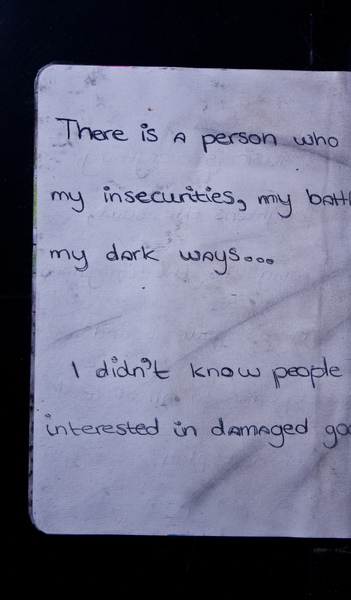 There is a person who
my insecurities, my
my dark ways...
I didn't know people
interested in damaged